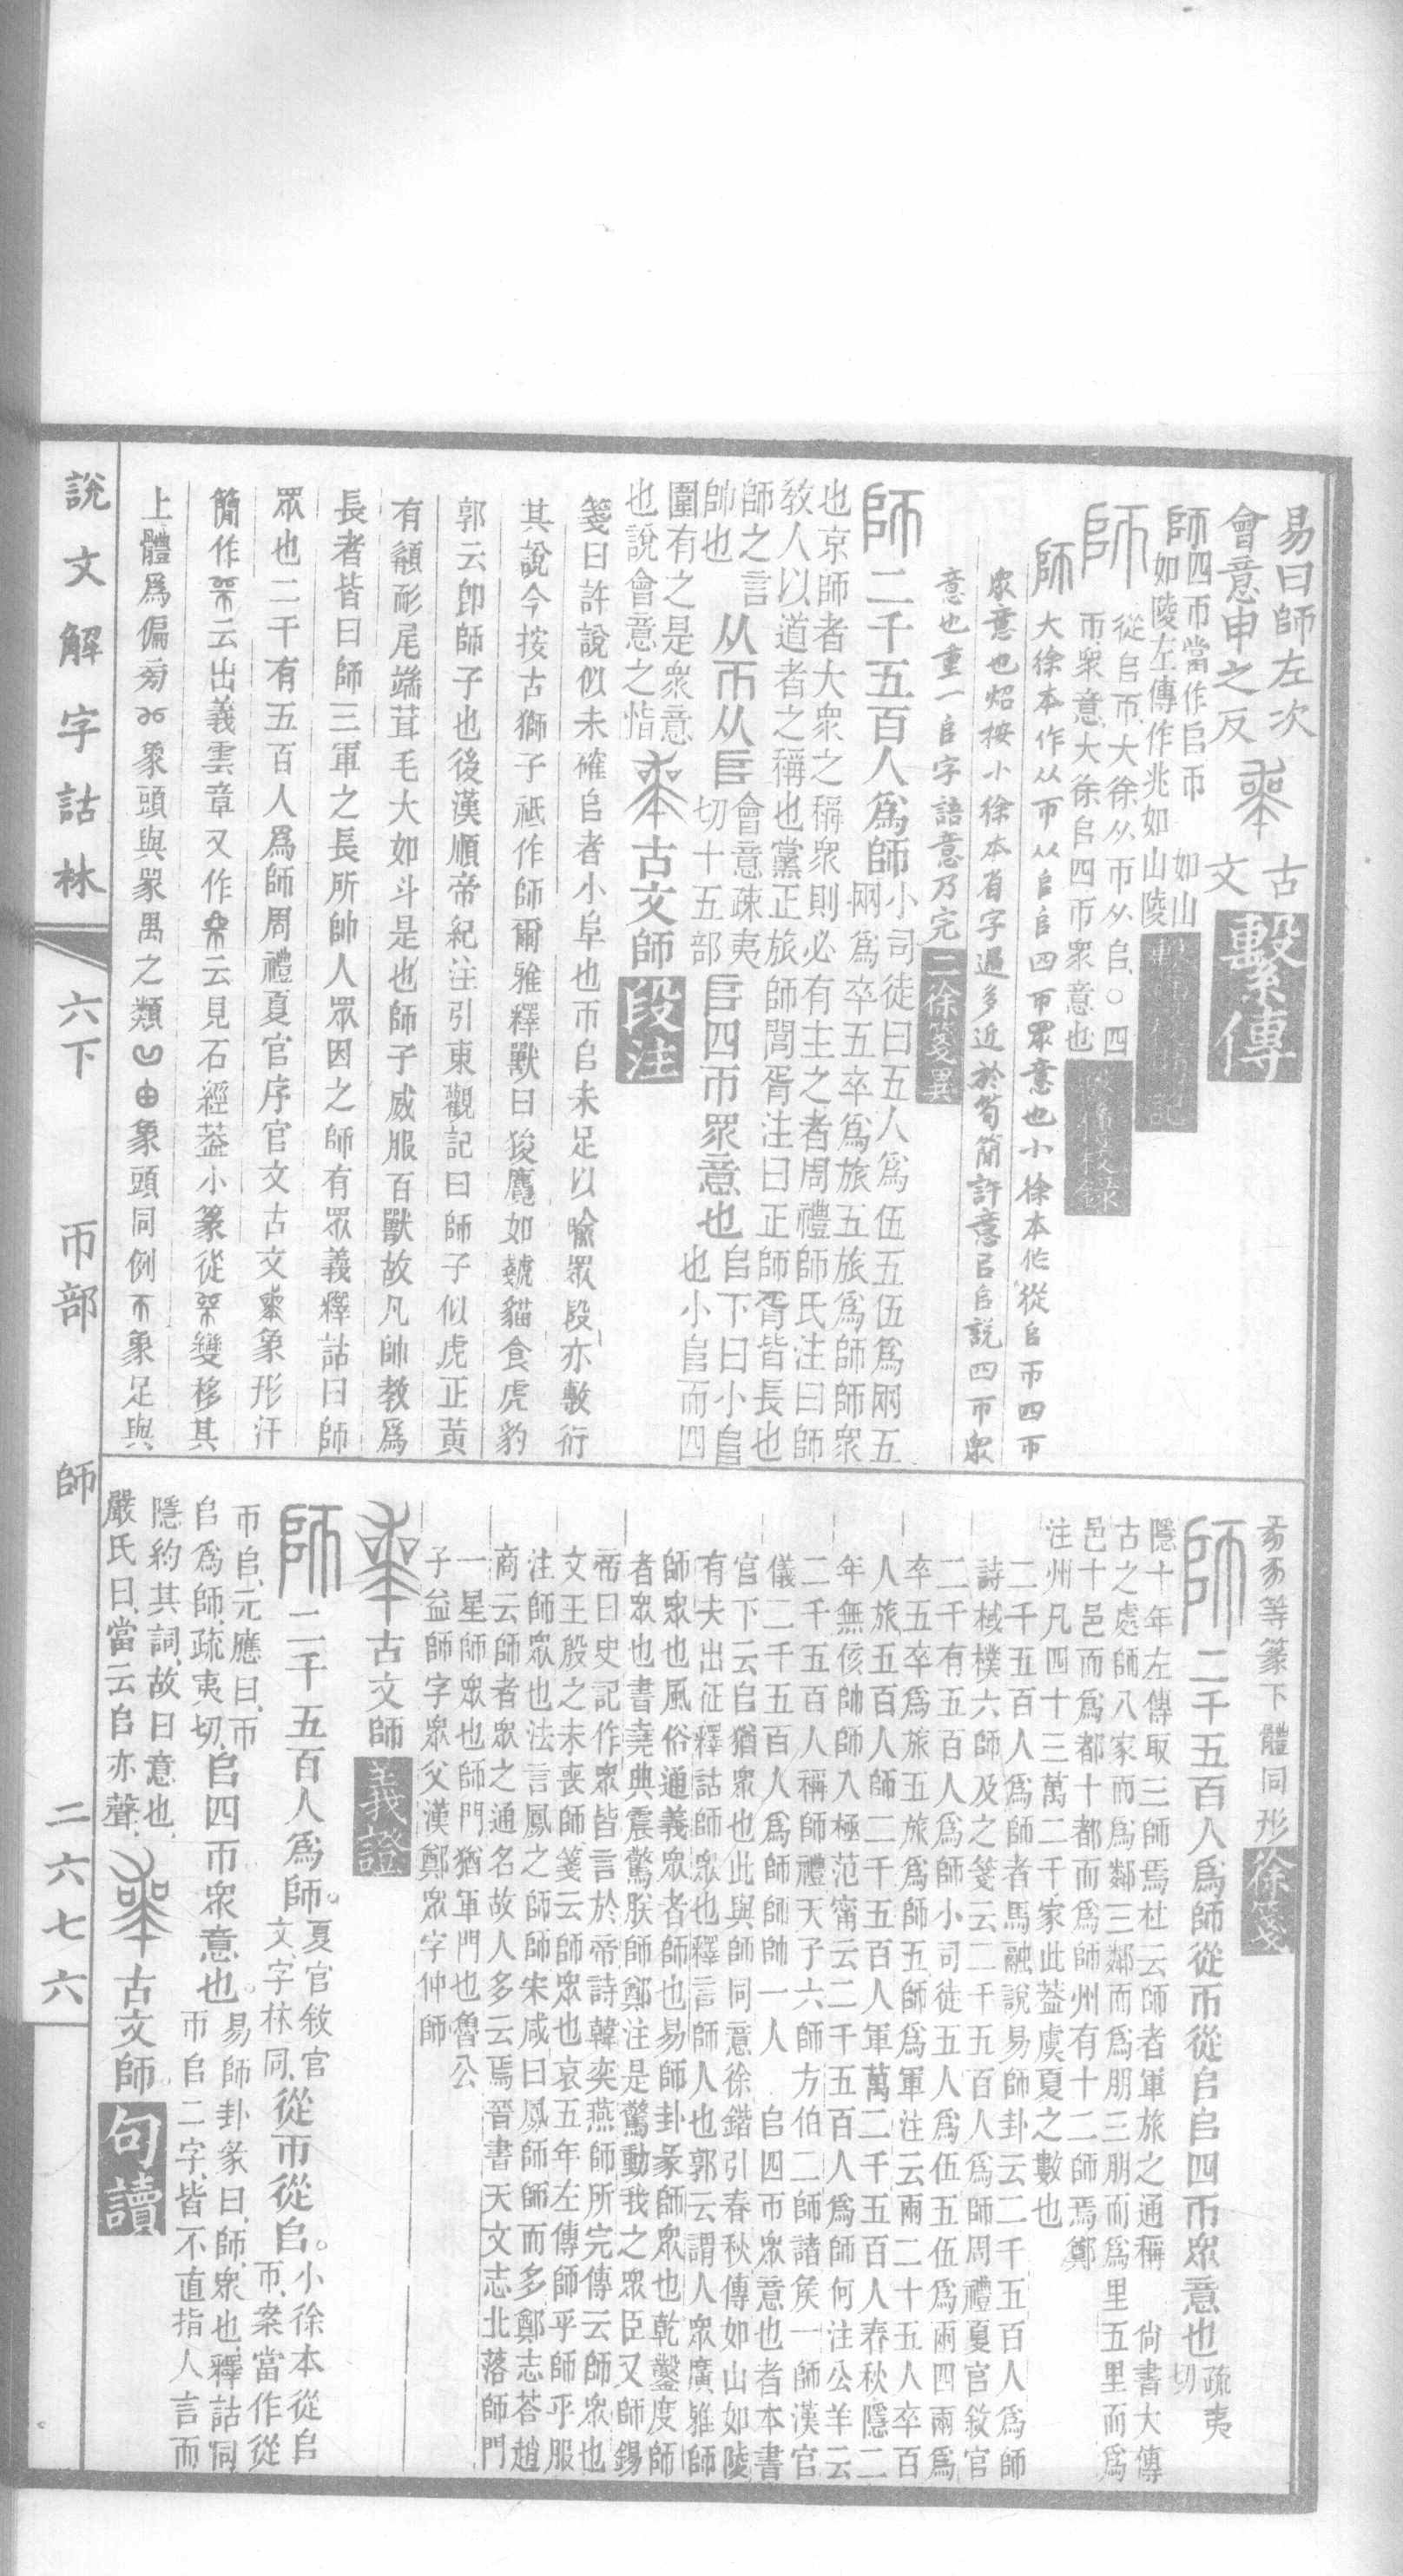 易曰師左次
會意申之反
古
文
繫傳
師四帀當作𠂤帀 如山
如陵左傳作兆如山陵
師 從𠂤帀大徐从帀从𠂤○四
帀衆意大徐𠂤四帀衆意也
師 大徐本作从帀从𠂤𠂤四帀眾意也小徐本作從𠂤帀四帀
衆意也炤按小徐本省字過多近於苟簡許意㠯𠂤說四帀衆
意也重一𠂤字語意乃完 二徐箋異
師 二千五百人爲師 小司徒曰五人爲伍五伍爲兩五
兩爲卒五卒爲旅五旅爲師師衆
也京師者大衆之稱衆則必有主之者周禮師氏注曰師
教人以道者之稱也黨正旅師閭胥注曰正師胥皆長也
師之言
帥也 从帀从𠂤 會意疎夷
切十五部 𠂤四帀眾意也 𠂤下曰小𨸏
也小𨸏而四
圍有之是衆意
也說會意之恉 古文師 段注
箋曰許說似未確𠂤者小阜也帀𠂤未足以喩眾段亦敷衍
其說今按古獅子祇作師爾雅釋獸曰狻麑如虦貓食虎豹
郭云卽師子也後漢順帝紀注引東觀記曰師子似虎正黃
有䫇耏尾端茸毛大如斗是也師子威服百獸故凡帥教爲
長者皆曰師三軍之長所帥人眾因之師有眾義釋詁曰師
眾也二千有五百人爲師周禮夏官序官文古文象形汗
簡作云出義雲章又作云見石經葢小篆從變移其
上體爲偏旁象頭與㲋禺之類象頭同例不象足與
等篆下體同形 徐箋
師 二千五百人爲師從帀從𠂤𠂤四帀眾意也 疏夷
切
隱十年左傳取三師焉杜云師者軍旅之通稱 尙書大傳
古之處師八家而爲鄰三鄰而爲朋三朋而爲里五里而爲
邑十邑而爲都十都而爲師州有十二師焉鄭
注州凡四十三萬二千家此葢虞夏之數也
二千五百人爲師者馬融說易師卦云二千五百人爲師
詩棫樸六師及之箋云二千五百人爲師周禮夏官敘官
二千有五百人爲師小司徒五人爲伍五伍爲兩四兩爲
卒五卒爲旅五旅爲師五師爲軍注云兩二十五人卒百
人旅五百人師二千五百人軍萬二千五百人春秋隱二
年無侅帥師入極范甯云二千五百人爲師何注公羊云
二千五百人稱師禮天子六師方伯二師諸矦一師漢官
儀二千五百人爲師師帥一人 𠂤四帀眾意也者本書
官下云𠂤猶衆也此與師同意徐鍇引春秋傳如山如陵
有夫出征釋詁師衆也釋言師人也郭云謂人衆廣雅師
師衆也風俗通義衆者師也易師卦彖師衆也乾鑿度師
者衆也書堯典震驚朕師鄭注是驚動我之衆臣又師錫
帝曰史記作衆皆言於帝詩韓奕燕師所完傳云師衆也
文王殷之未喪師箋云師眾也哀五年左傳師乎師乎服
注師眾也法言鳳之師師宋咸曰鳳師師而多鄭志荅趙
商云師者眾之通名故人多云焉晉書天文志北落師門
一星師眾也師門猶軍門也魯公
子益師字眾父漢鄭眾字仲師
古文師 義證
師 二千五百人爲師。 夏官敘官
文字林同 從帀從𠂤。 小徐本從𠂤
帀案當作從
帀𠂤元應曰帀
𠂤爲師疏夷切 𠂤四帀衆意也。 易師卦彖曰師衆也釋詁同
帀𠂤二字皆不直指人言而
隱約其詞故曰意也
嚴氏曰當云𠂤亦聲 古文師 句讀
說文解字詁林 六下 帀部 師 二六七六